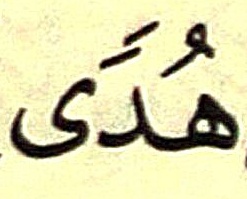 هُدًى